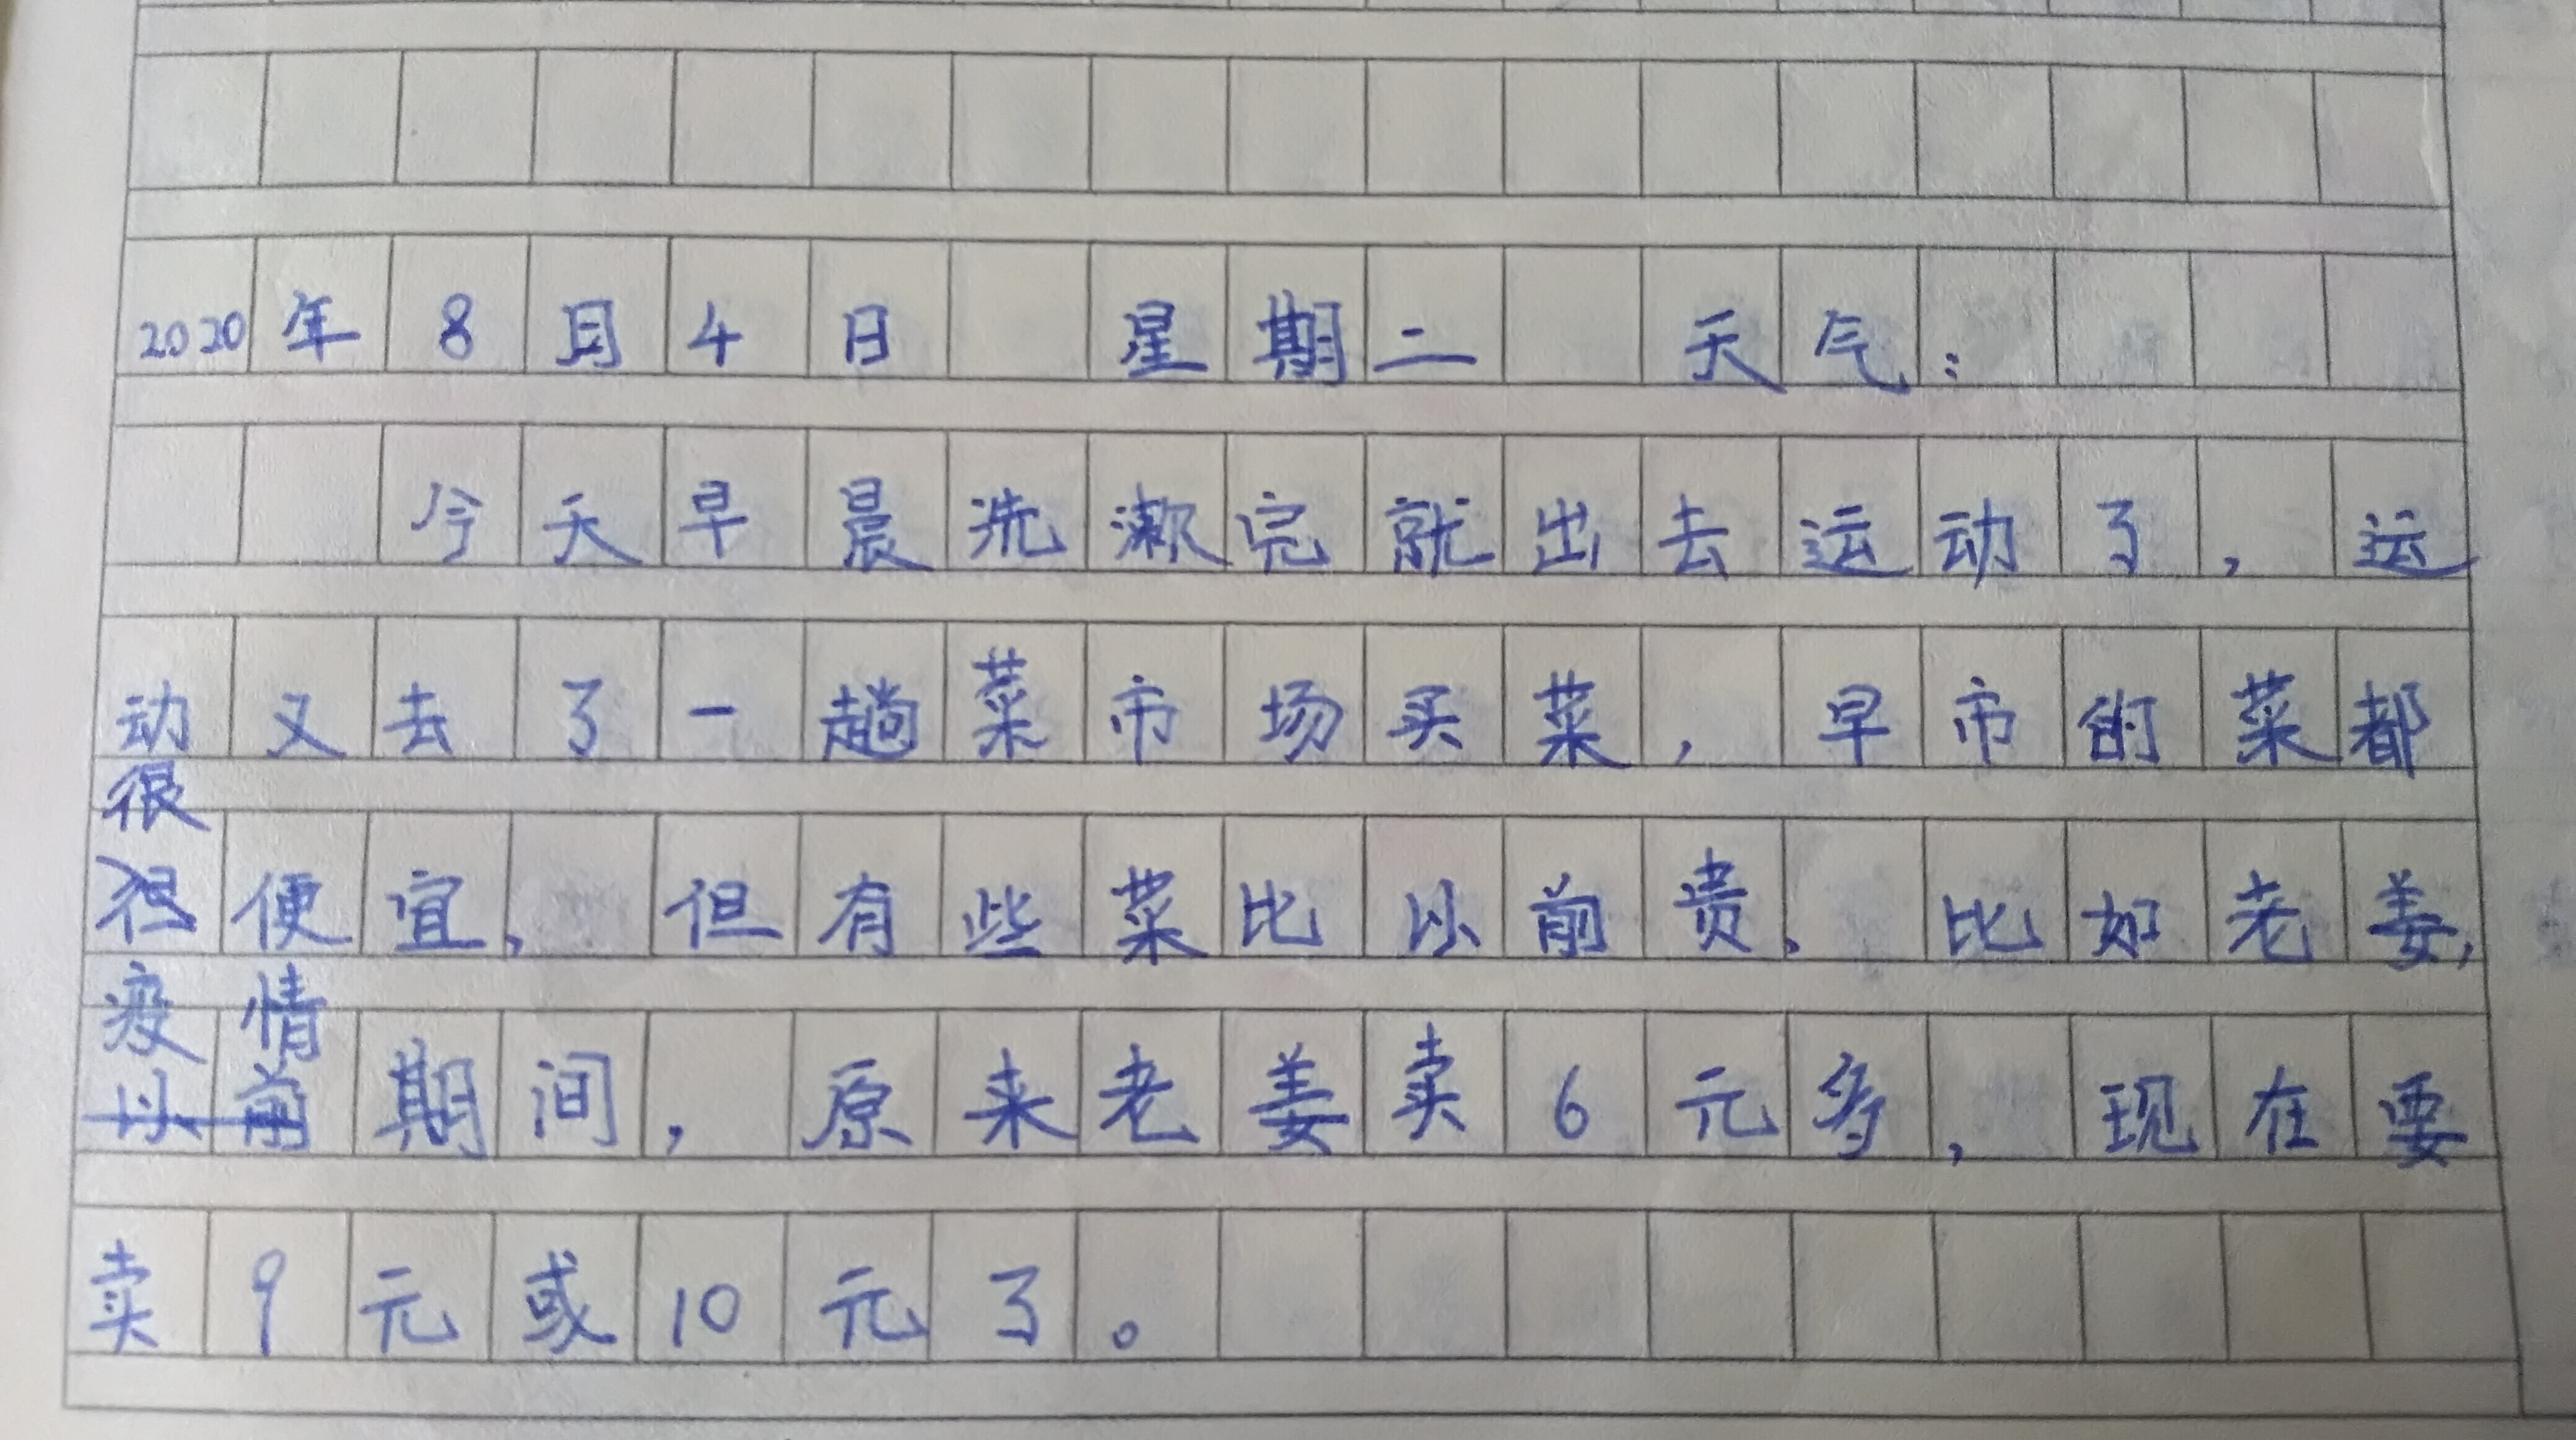 2020年8月4日 星期二 天气:
今天早晨洗漱完就出去运动了，运
动又去了一趟菜市场买菜，早市的菜都
很
很便宜，但有些菜比以前贵、比如老姜，
疫情
以前期间，原来老姜卖6元多，现在要
卖9元或10元了。